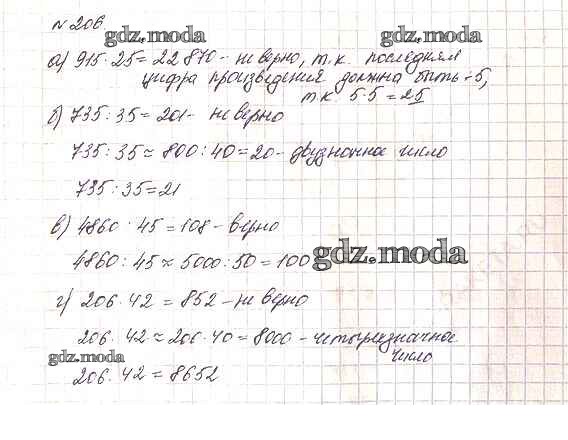 №206
gdz.moda gdz.moda
а) 915·25=22 870 - не верно, т.к. последняя
цифра произведения должна быть - 5,
т.к. 5·5=25
б) 735:35=201- не верно
735:35≈800:40=20- двузначное число
735:35=21
в) 4860:45=108-верно
4860:45≈5000:50=100
gdz.moda
г) 206·42=852-не верно
206·42≈200·40=8000-четырехзначное
число
gdz.moda
206·42=8652